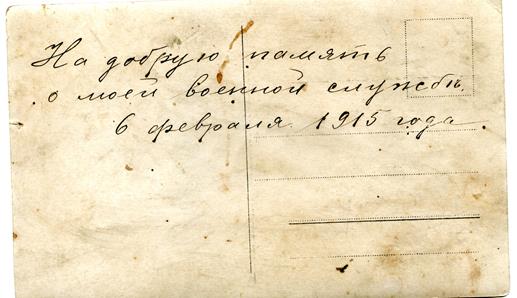 На добрую память
о моей военной службѣ.
6 февраля 1915 года